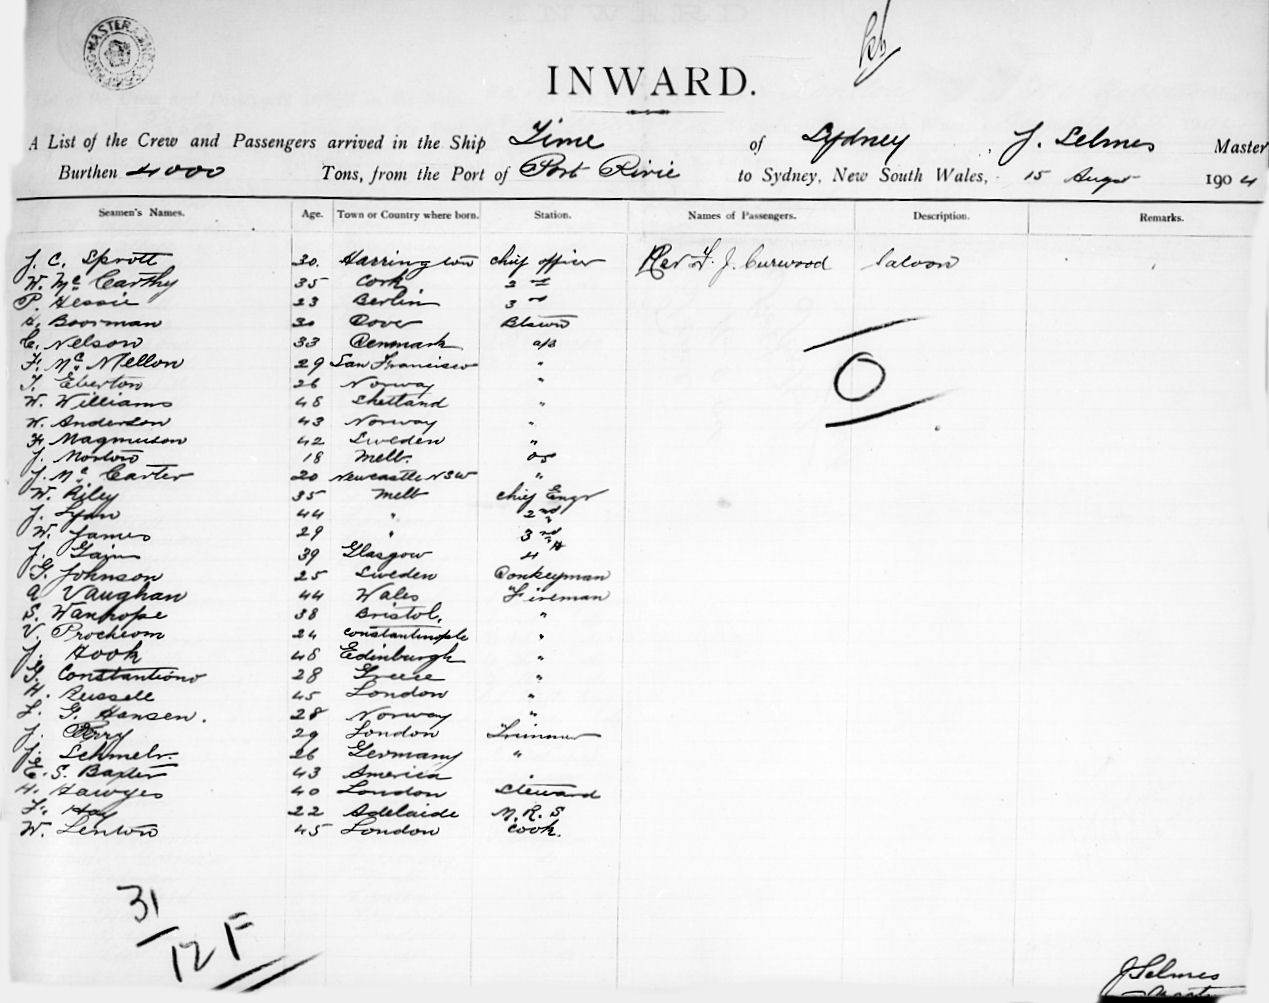 INWARD.
A List of the Crew and Passengers arrived in the Ship Time of Sydney, J. Selmes Master
Burthen 4000 Tons, from the Port of Port Pirie to Sydney, New South Wales, 15 Augst 1904
Seamen's Names. Age. Town or Country where born. Station. Names of Passengers. Description. Remarks.
J. C. Sprott 30. Harrington chief officer Rev F. J. Curwood Saloon
W. Mc Carthy 35 Cork 2nd
P. Hessie 23 Berlin 3rd
Boorman 30 Dover Btswn
C. Nelson 33 Denmark a/b
F. Mc Mellon 29 San Francisco "
T. Eberton 26 Norway "
W. Williams 48 Shetland "
W. Anderson 43 Norway "
H. Magnuson 42 Sweden "
J. Morton 18 Melb. os
J. Mc Carter 20 Newcastle NSW "
W. Riley 35 Melb chief Engr
J. Lyan 44 " 2nd "
W. James 29 " 3rd "
J. Gain 39 Glasgow 4 "
G. Johnson 25 Sweden Donkeyman
A Vaughan 44 Wales Fireman
S. Wanhope 38 Bristol. "
V. Procheom 24 Constantinople "
J. Hook 48 Edinburgh "
G. Constantiono 28 Greece "
H. Russell 45 London "
F. G. Hansen. 28 Norway "
J. Perry 29 London Trimmer
J. Schmelr. 26 Germany "
E. S. Baxter 43 America "
H. Hawyes 40 London Steward
F. Hay 22 Adelaide M. R. S
W. Lenton 45 London Cook.
0
31
12 F
J Selmes
Master